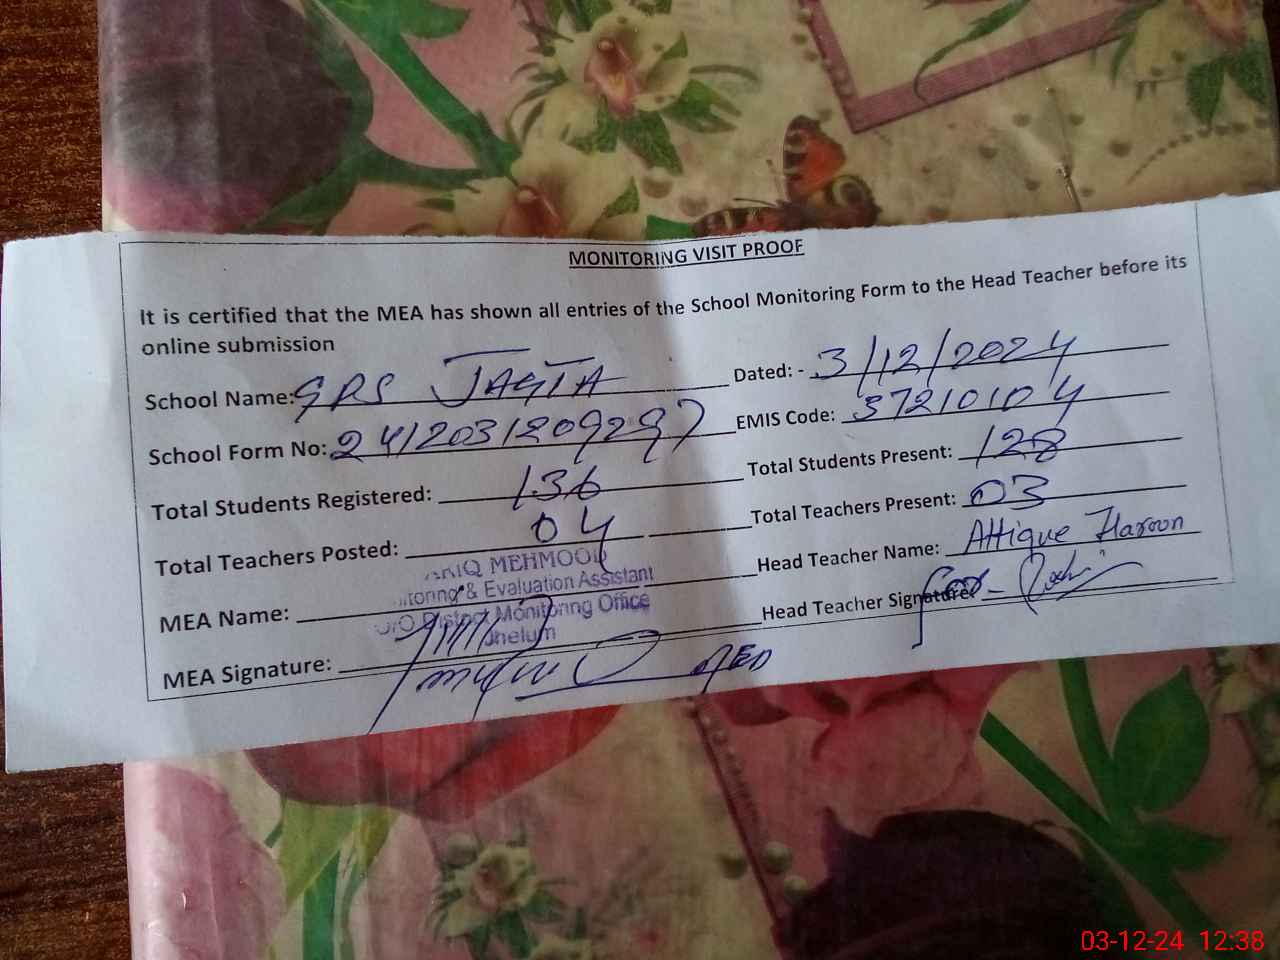 MONITORING VISIT PROOF
It is certified that the MEA has shown all entries of the School Monitoring Form to the Head Teacher before its
online submission
School Name: GPS JAGTA Dated: - 3/12/2024
School Form No: 2412031209297 EMIS Code: 37210104
Total Students Registered: 136 Total Students Present: 128
Total Teachers Posted: 04 Total Teachers Present: 03
MEA Name: MEHMOOD Head Teacher Name: Attique Haroon
& Evaluation Assistant
District Monitoring Office
Jhelum
MEA Signature: Head Teacher Signature:
03-12-24 12:38